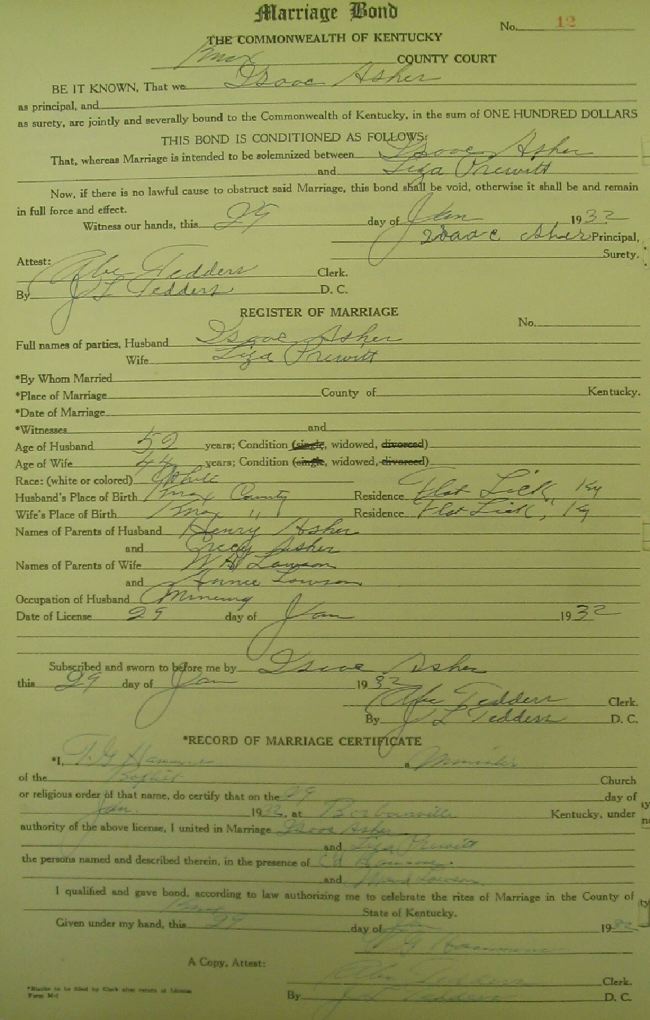 Marriage Bond
No. 12
THE COMMONWEALTH OF KENTUCKY
Knox COUNTY COURT
BE IT KNOWN, That we Isaac Asher
as principal, and
as surety, are jointly and severally bound to the Commonwealth of Kentucky, in the sum of ONE HUNDRED DOLLARS
THIS BOND IS CONDITIONED AS FOLLOWS:
That, whereas Marriage is intended to be solemnized between Isaac Asher
and Liza Prewitt
Now, if there is no lawful cause to obstruct said Marriage, this bond shall be void, otherwise it shall be and remain
in full force and effect.
Witness our hands, this 29 day of Jan 1932
Isaac Asher Principal,
Surety.
Attest:
Abe Tedders Clerk.
By J L Tedders D. C.
REGISTER OF MARRIAGE
No.
Full names of parties, Husband Isaac Asher
Wife Liza Prewitt
*By Whom Married
*Place of Marriage County of Kentucky.
*Date of Marriage
*Witnesses and
Age of Husband 52 years; Condition (single, widowed, divorced)
Age of Wife 44 years; Condition (single, widowed, divorced)
Race: (white or colored) White
Husband's Place of Birth Knox County Residence Flat Lick, Ky
Wife's Place of Birth Knox " Residence Flat Lick, Ky
Names of Parents of Husband Henry Asher
and Asher
Names of Parents of Wife Lawson
and Lawson
Occupation of Husband Mining
Date of License 29 day of Jan 1932
Subscribed and sworn to before me by Isaac Asher
this 29 day of Jan 1932
Abe Tedders Clerk.
By J L Tedders D. C.
*RECORD OF MARRIAGE CERTIFICATE
*I, a Minister
of the Baptist Church
or religious order of that name, do certify that on the 29 day of
Jan. 1932, at Barbourville Kentucky, under
authority of the above license, I united in Marriage Isaac Asher
and Liza Prewitt
the persons named and described therein, in the presence of
and Lawson
I qualified and gave bond, according to law authorizing me to celebrate the rites of Marriage in the County of
Knox State of Kentucky.
Given under my hand, this 29 day of Jan 1932
A Copy, Attest:
Abe Tedders Clerk.
By J L Tedders D. C.
*Blanks to be filed by Clerk after return of License
Form M-1